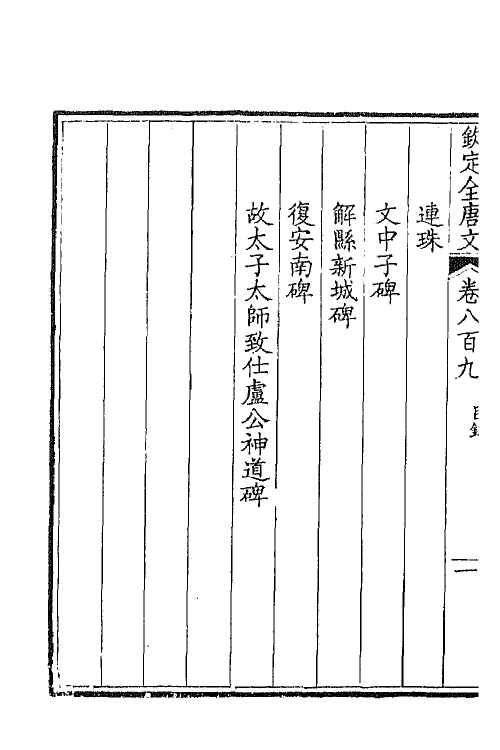 欽定全唐文 卷八百九 目錄 二
連珠
文中子碑
解縣新城碑
復安南碑
故太子太師致仕盧公神道碑